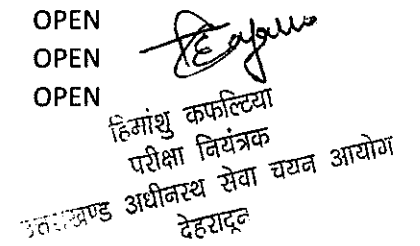 OPEN
OPEN
OPEN
हिमांशु कफल्टिया
परीक्षा नियंत्रक
उत्तराखण्ड अधीनस्थ सेवा चयन आयोग
देहरादून